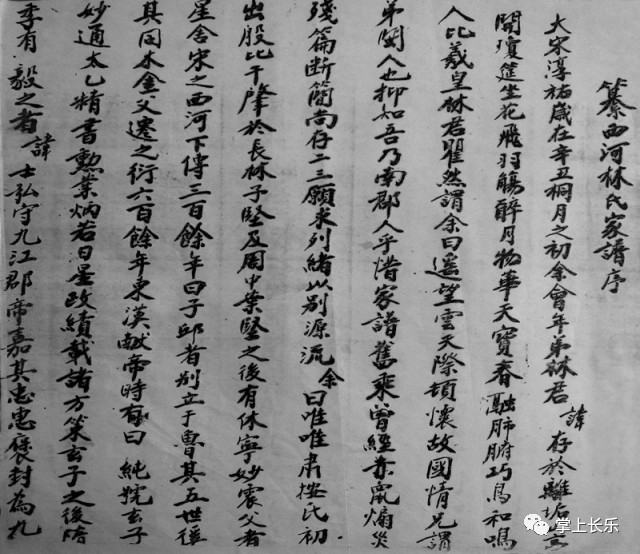 纂西河林氏家譜序
大宋淳祐歲在辛丑桐月之初余會年弟林君諱存於離垢
開瓊筵坐花飛羽觴醉月物華天寶春融肺腑巧鳥和鳴
人比羲皇林君瞿然謂余曰遥望雲天際頓懷故國情兄謂
弟閩人也抑知吾乃南郡人乎惜家譜舊乘曾經兵亂煽災
殘篇斷簡尚存二三願求列緒以别源流余曰唯唯肃按氏初
出殷比干肇於長林子堅及周中葉堅之後有休寧妙震父者
星舍宋之西河下傳三百餘年曰子邱者别立于魯其五世徑
其回水金父遷之衍六百餘年東漢献帝時有曰純 玄子
妙通太乙精書勳業炳若日星政績載諸方策玄子之後
李有毅之者諱士弘守九江郡帝嘉其忠惠褒封為九
掌上长乐